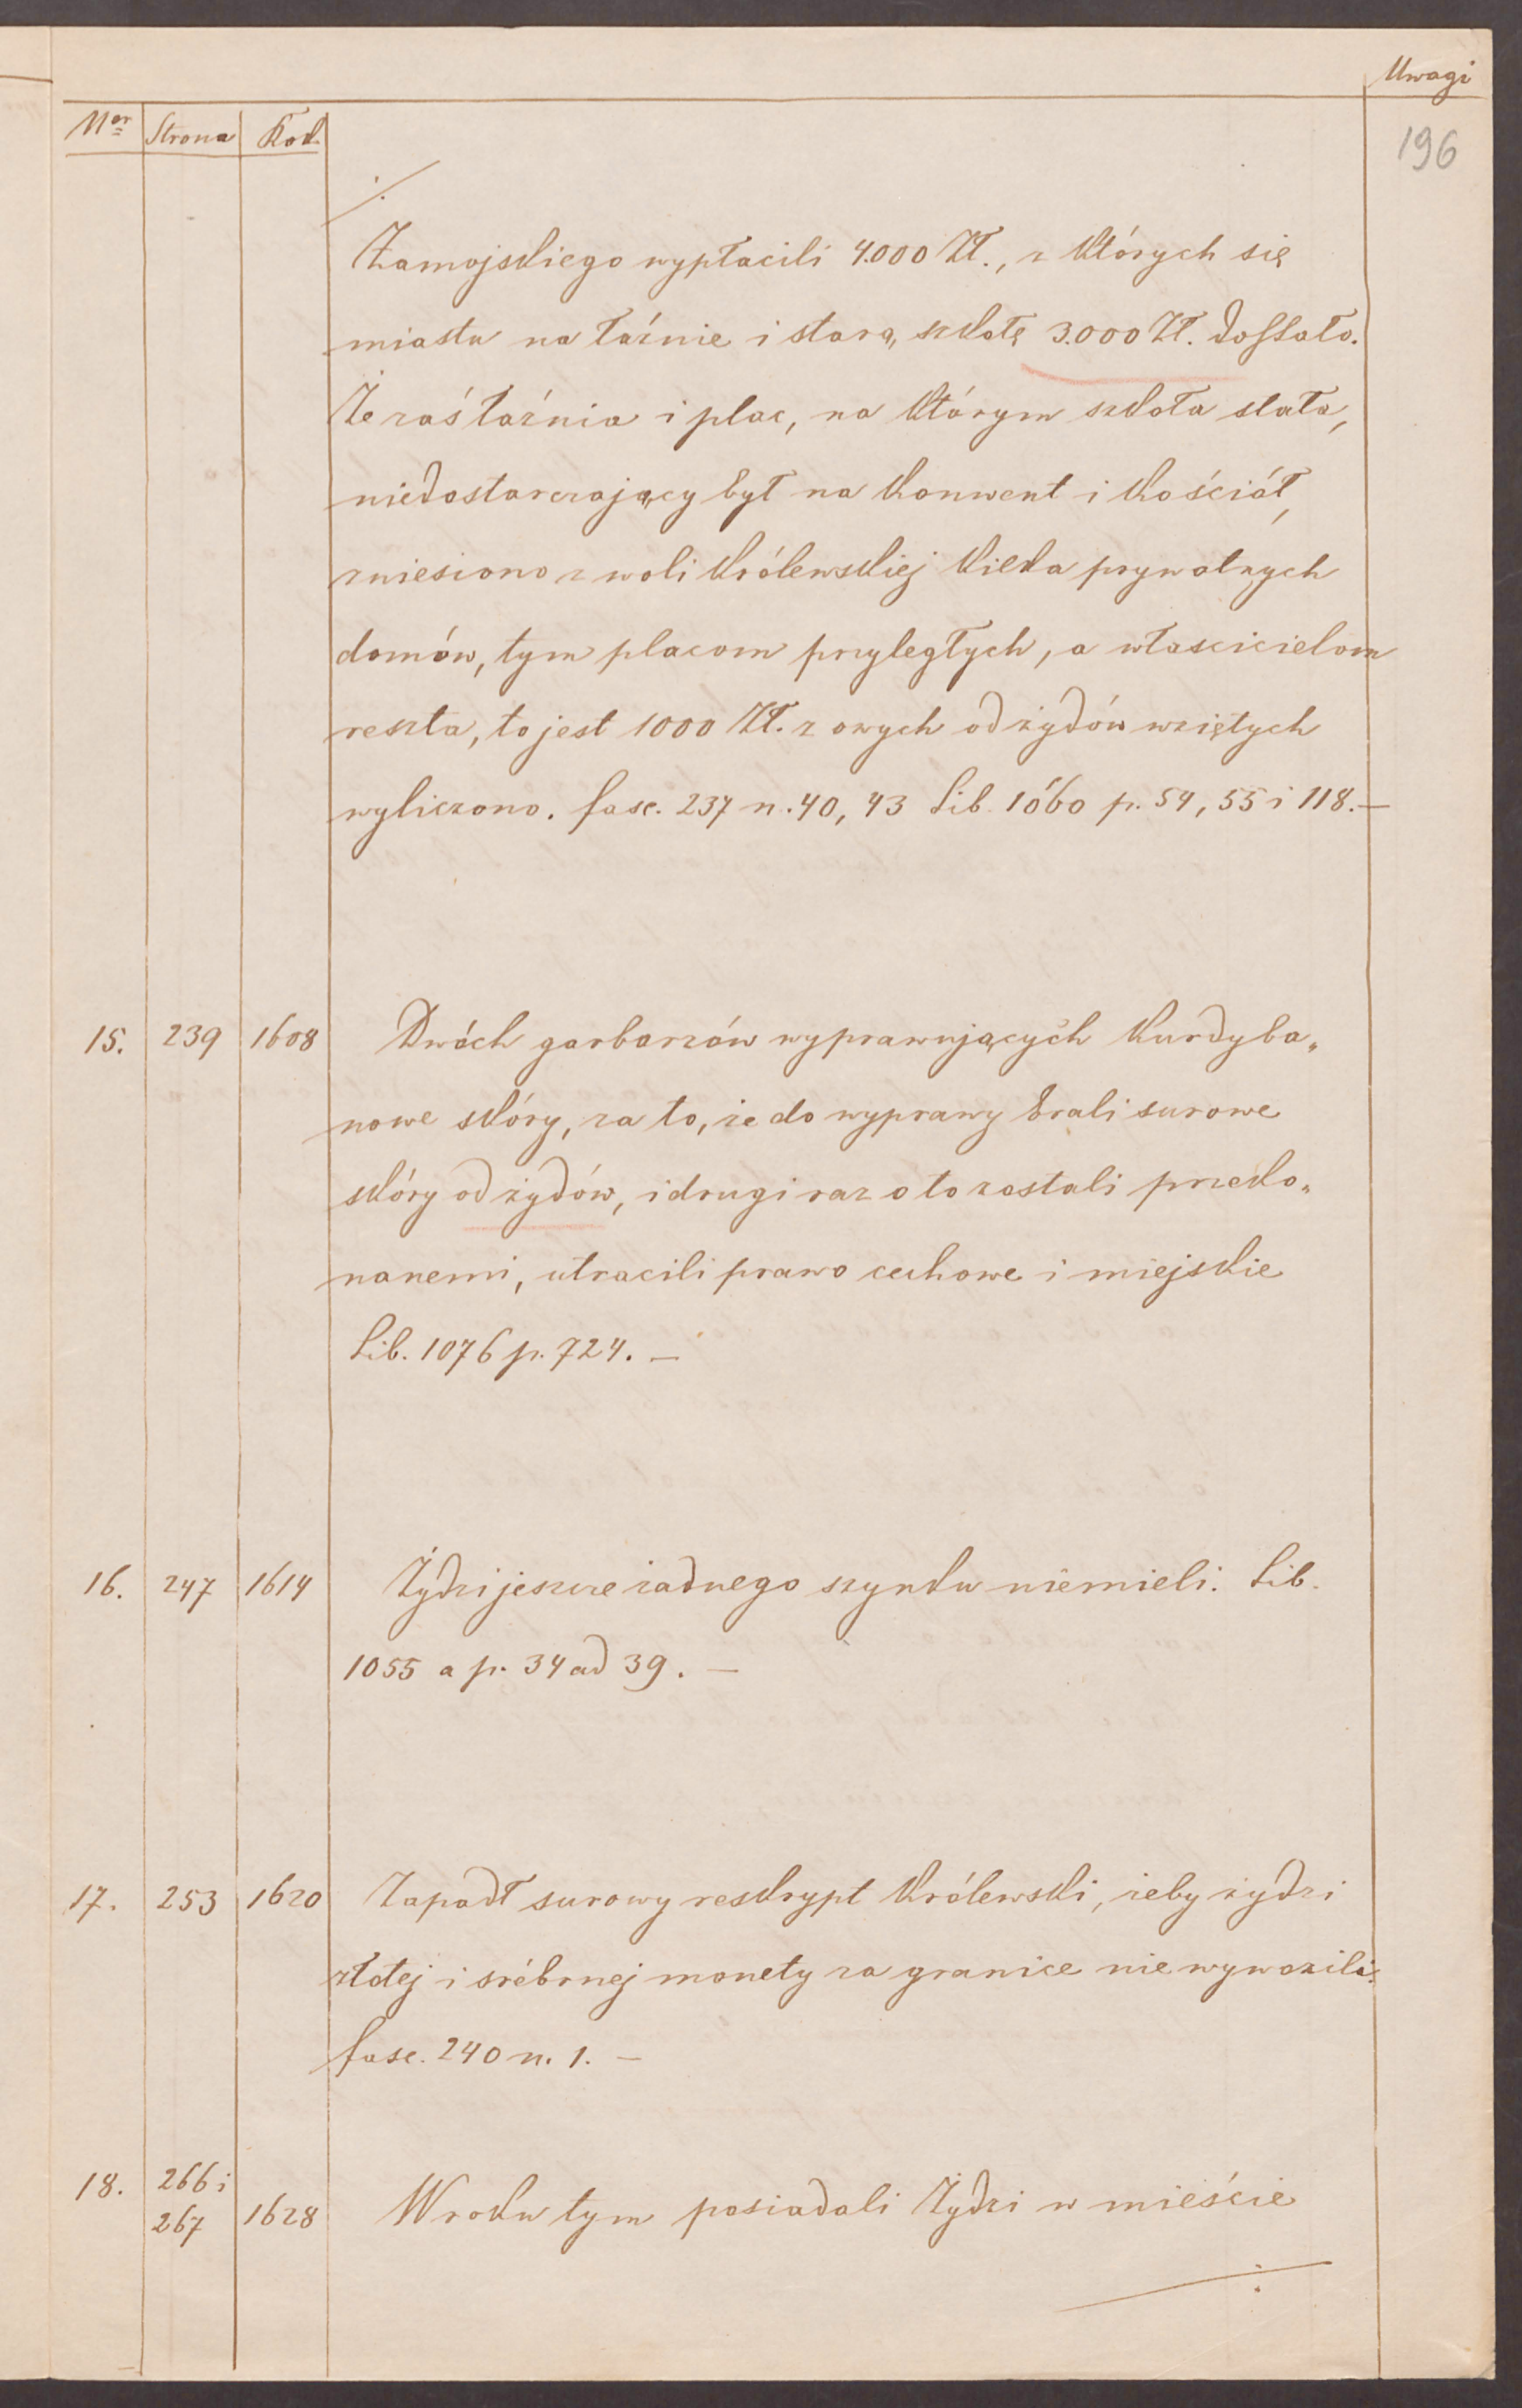 Uwagi
Ner Strona Rok
196
./.
Zamojskiego wypłacili 4.000 Zł., z których się
miastu na łaźnie i starą szkołę 3.000 Zł. dostało.
Że zaś łaźnia i plac, na którym szkoła stała,
niedostarczający był na konwent i kościół,
zniesiono z woli królewskiej kilka prywatnych
domów, tym placom przyległych, a właścicielom
reszta, to jest 1000 Zł. z owych od żydów wziętych
wyliczono. fasc. 237 n. 40, 43 Lib. 1060 p. 54, 55 i 118. —
15. 239 1608 Dwóch garbarzów wyprawujących kurdyba„
nowe skóry, za to, że do wyprawy brali surowe
skóry od żydów, i drugi raz o to zostali przeko„
nanemi, utracili prawo cechowe i miejskie
Lib. 1076 p. 724. —
16. 247 1614 Żydzi jeszcze żadnego szynku niemieli. Lib.
1055 a p. 34 ad 39. —
17. 253 1620 Zapadł surowy reskrypt królewski, żeby żydzi
złotej i srébrnej monety za granice nie wywozili.
fasc. 240 n. 1. —
18. 266 i
267 1628 W roku tym posiadali Żydzi w mieście
./.